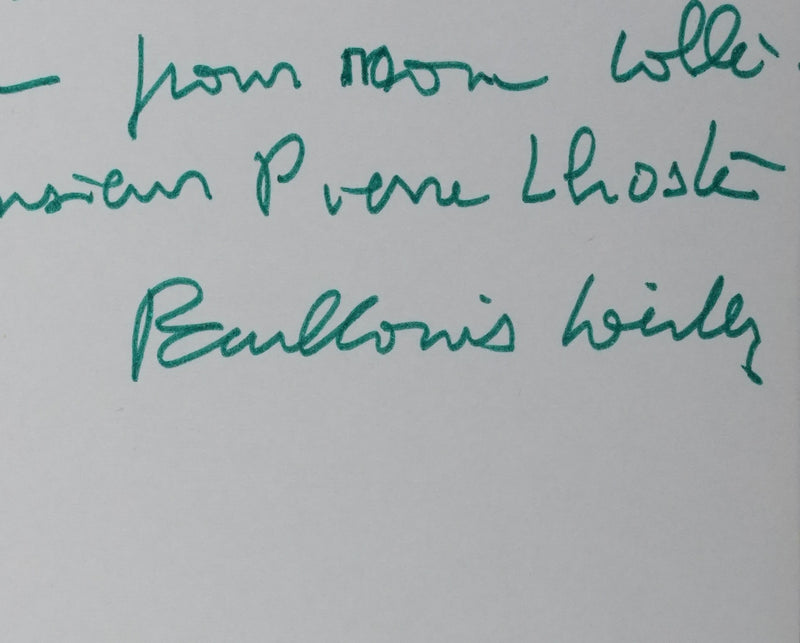 — pour mon collè-
nsieur Pierre Lhoste
Paul Louis Weiller